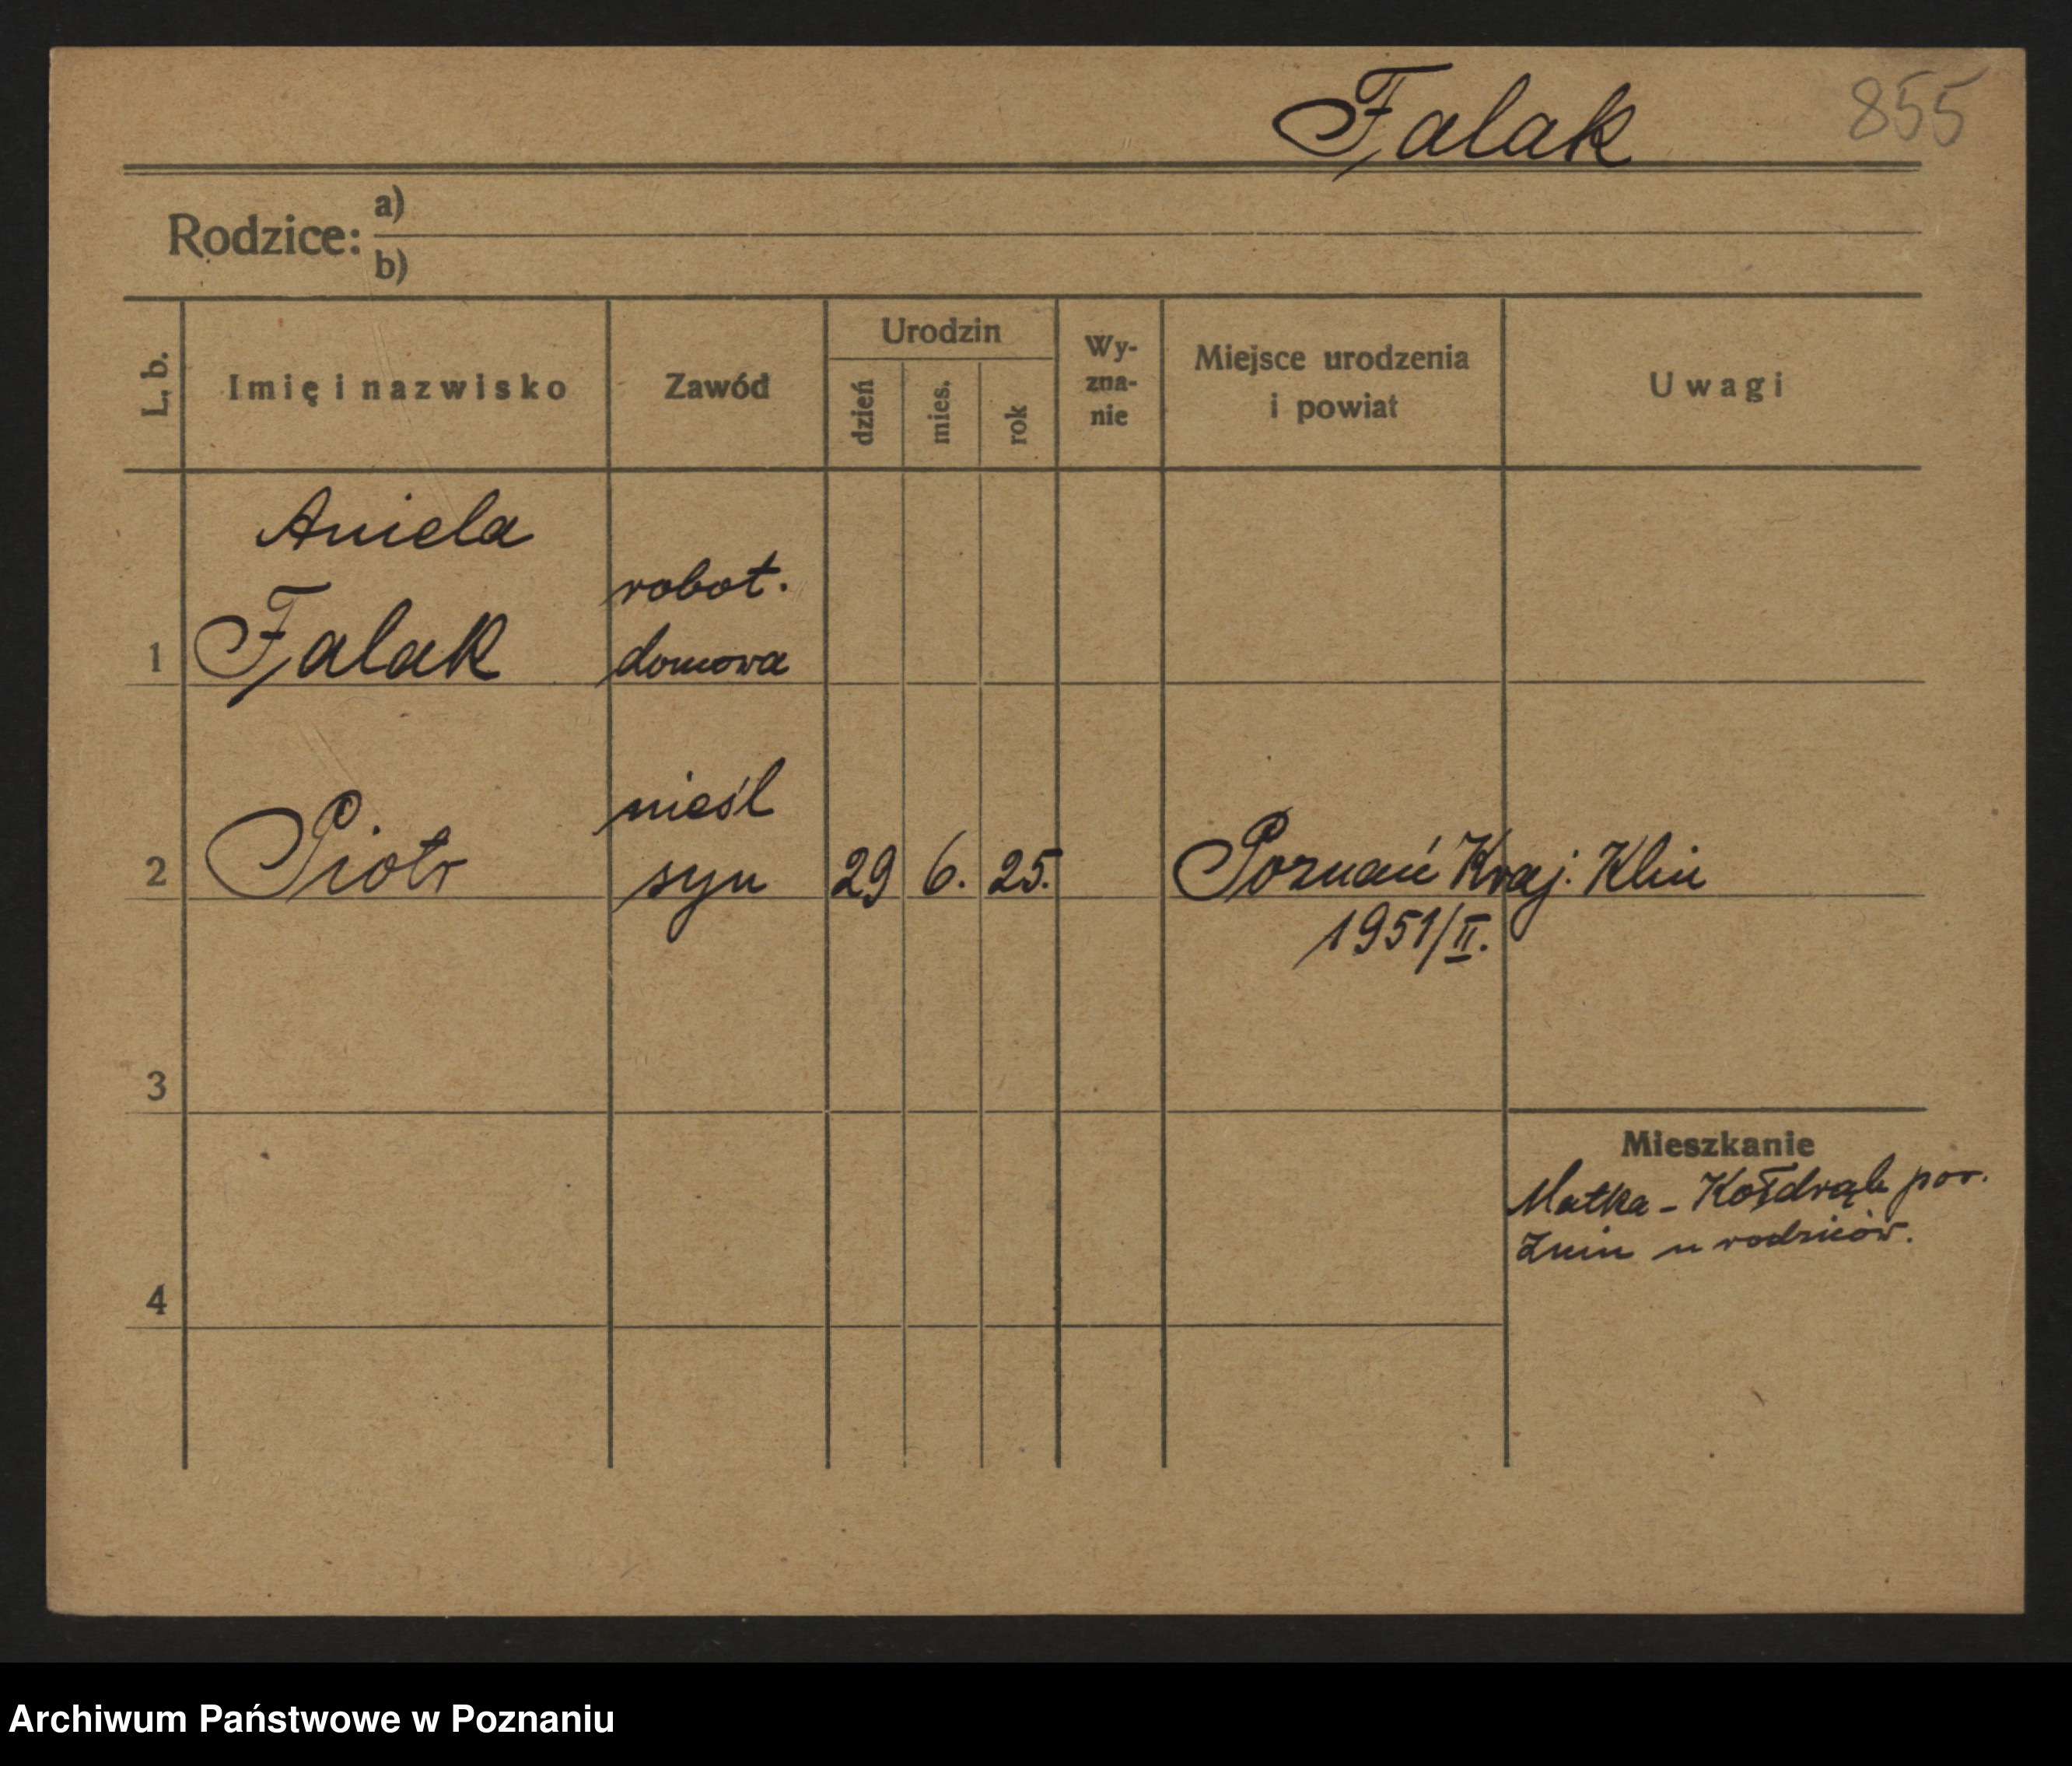 Falak 855
Rodzice: a)
b)
L. b. Imię i nazwisko Zawód Urodzin dzień mies. rok Wy-zna-nie Miejsce urodzenia i powiat Uwagi
Aniela
robot.
1 Falak domowa
nieśl
2 Piotr syn 29 6. 25. Poznań Kraj. Klin
1951/II.
3
Mieszkanie
Matka - Kołdrąb pow.
Znin u rodziców.
4
Archiwum Państwowe w Poznaniu